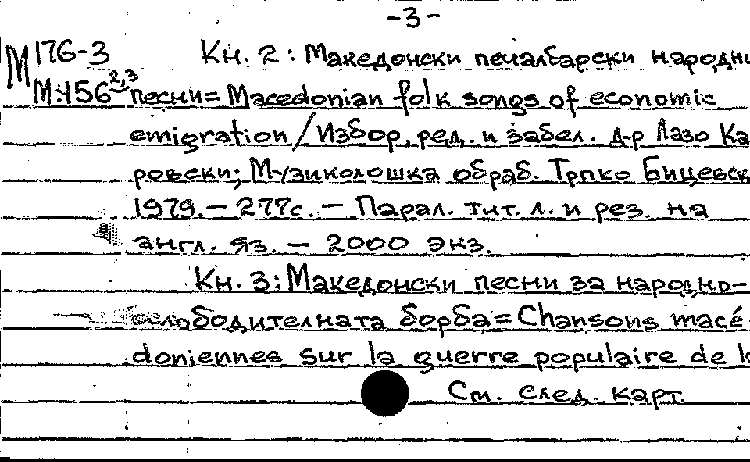 -3-
М176-3 Кн. 2: Македонски печалбарски народни
М:456 2,3 песни = Macedonian folk songs of economic
emigration / Избор, ред. и забел. д-р Лазо Ка
ровски; Музиколошка обраб. Трпко Бицевск
1979. – 277с. – Парал. тит. л. и рез. на
англ. яз. – 2000 экз.
Кн. 3: Македонски песни за народно-
ослободителната борба = Chansons macé
doniennes sur la guerre populaire de l
См. след. карт.